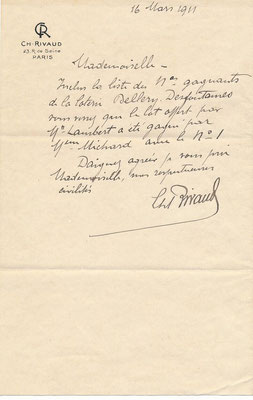 16 Mars 1911
CR
CH. RIVAUD
23. R de Seine
PARIS
Mademoiselle -
Inclus la liste des Nos gagnants
de la loterie Dellery. Desfontaines
vous verrez que le lot offert par
Mr Lambert a été gagné par
Mme Michard avec le No 1
Daignez agréer je vous prie
Mademoiselle, mes respectueuses
civilités
Ch Rivaud